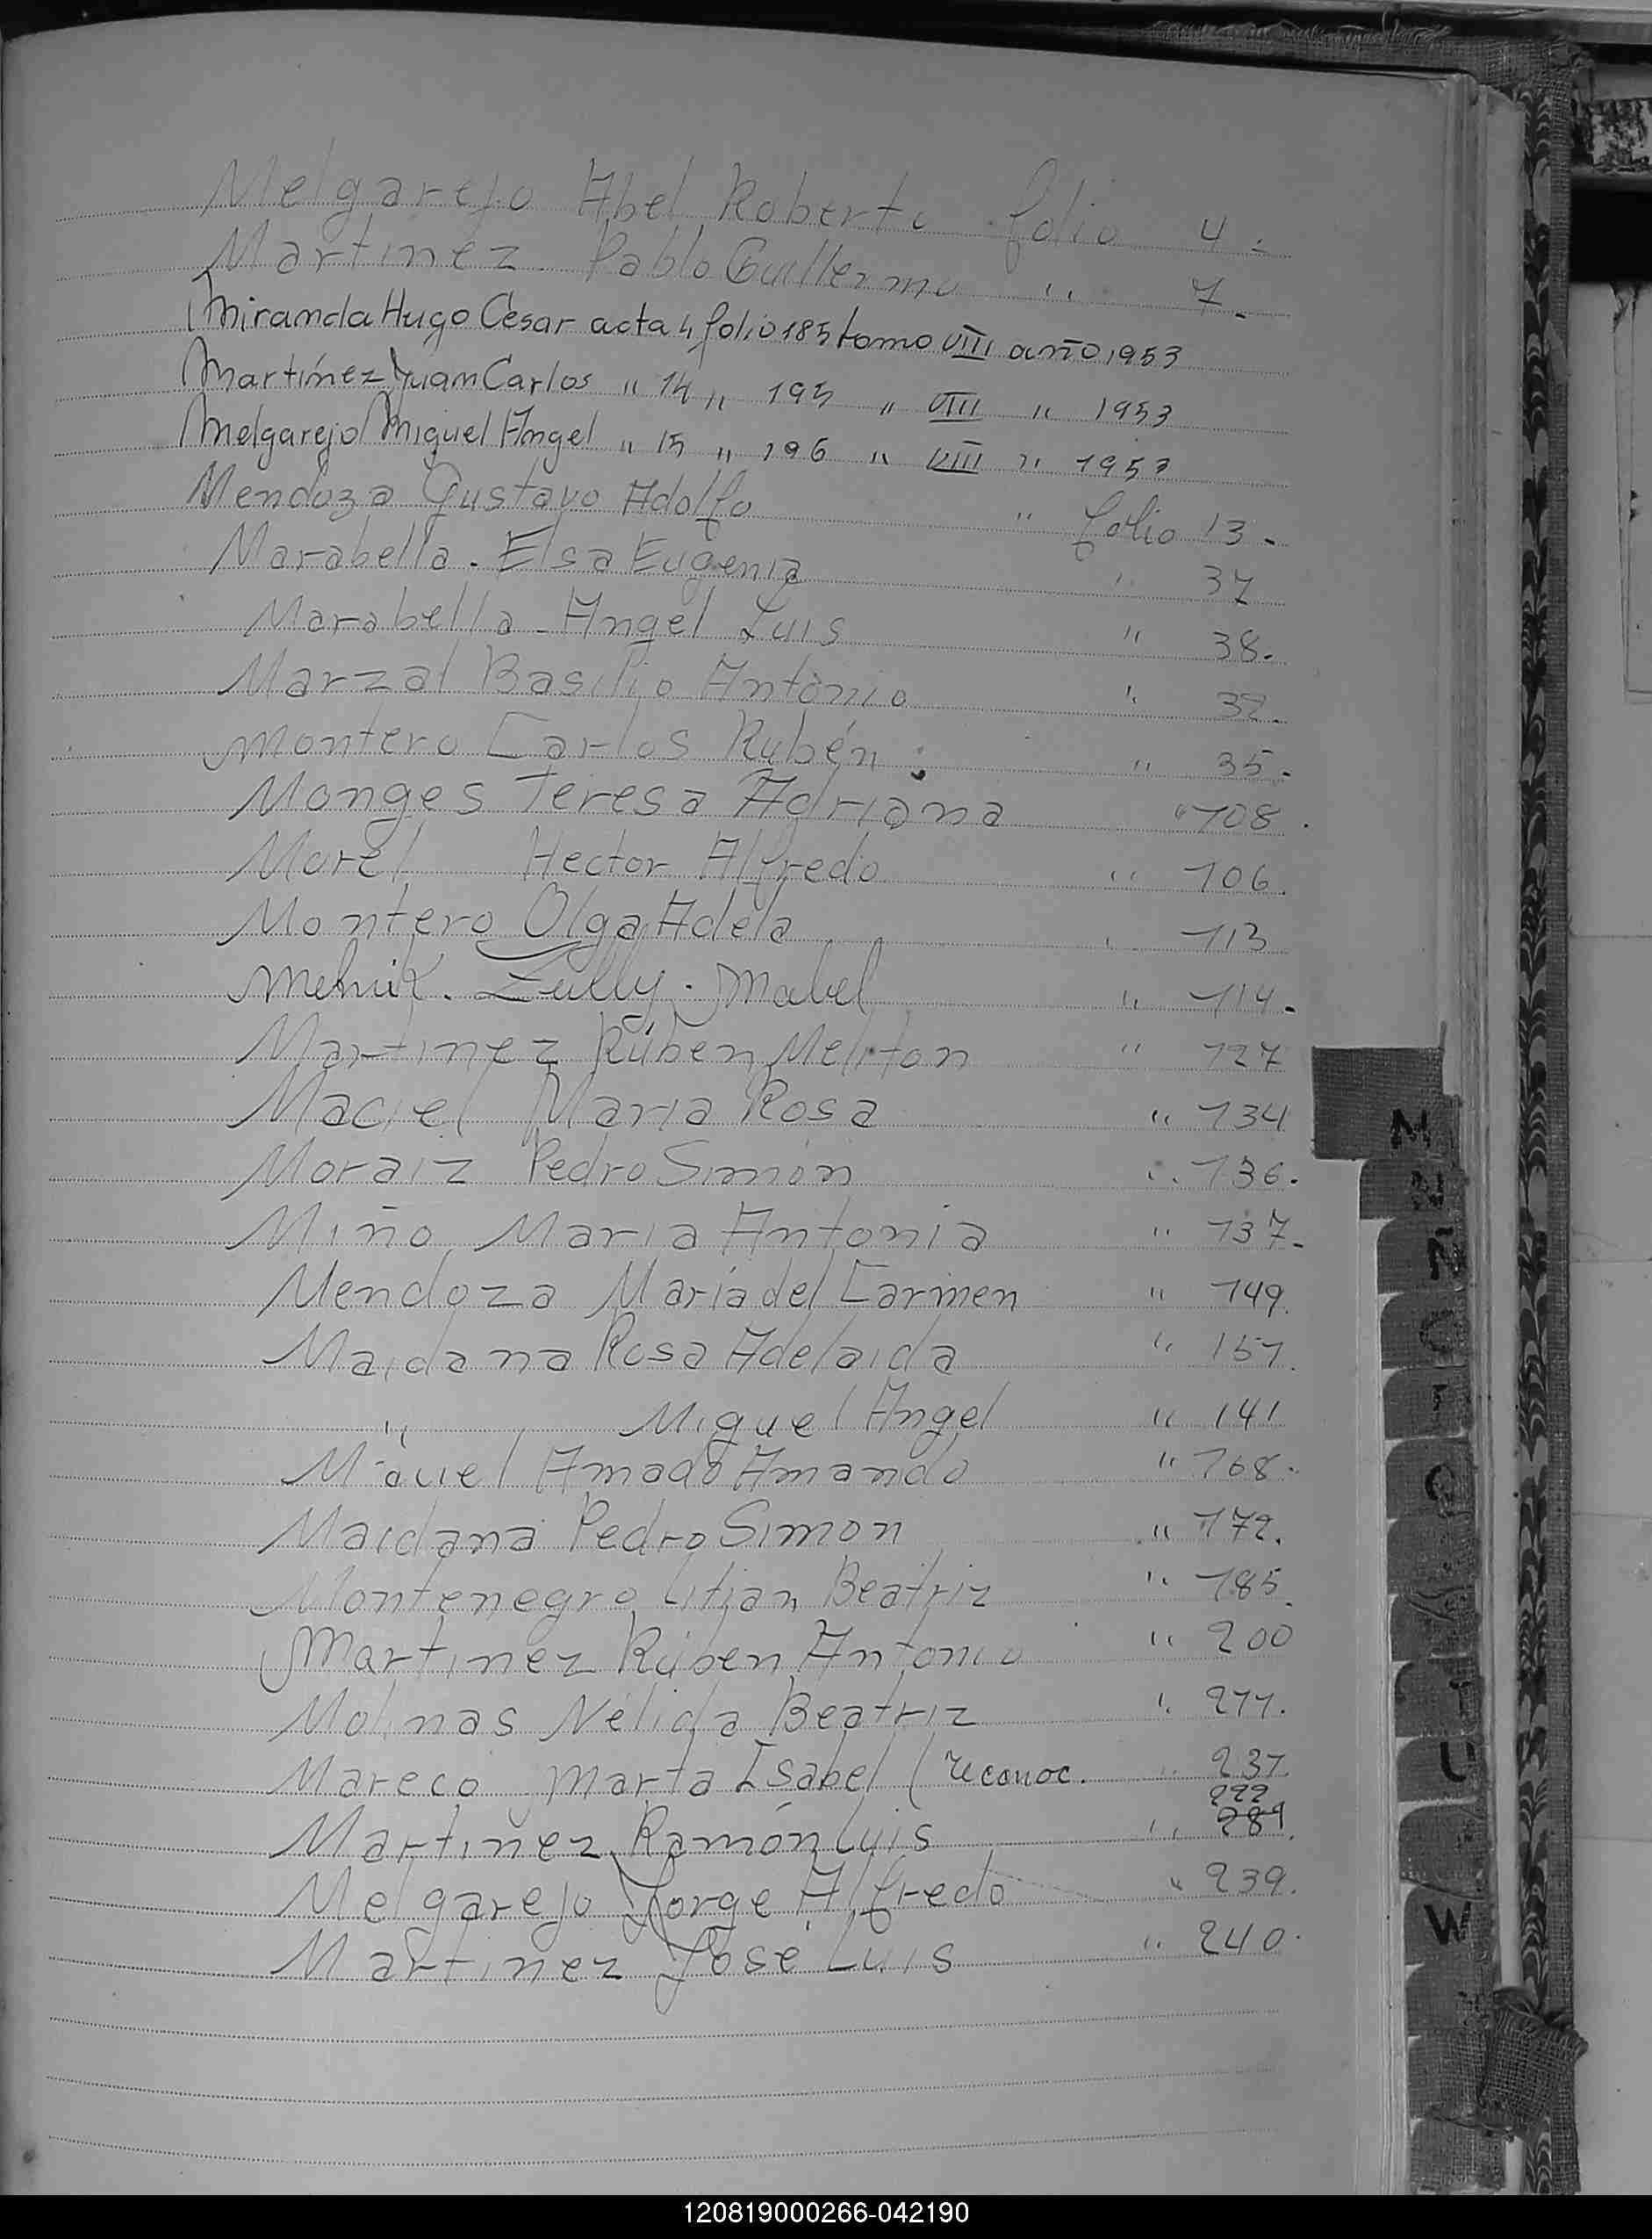 Melgarejo Abel Roberto folio 4.
Martinez Pablo Guillermo " 7.
Miranda Hugo César acta 4 folio 185 tomo VIII año 1953
Martínez Juan Carlos " 14 " 195 " VIII " 1953
Melgarejo Miguel Angel " 15 " 196 " VIII " 1953
Mendoza Gustavo Adolfo " folio 13.
Marabella. Elsa Eugenia " 37
Marabella - Angel Luis " 38.
Marzal Basilio Antonio " 32.
Montero Carlos Rubén. " 35.
Monges Teresa Adriana " 108.
Morel Hector Alfredo " 106.
Montero Olga Adela " 113
Melnik. Zully. Mabel " 114.
Martinez Rúben Meliton " 127
Maciel Maria Rosa " 134
Moraiz Pedro Simón " 136.
Miño Maria Antonia " 137.
Mendoza María del Carmen " 149.
Maidana Rosa Adelaida " 151.
" Miguel Angel " 141
Maciel Amado Amando " 168.
Maidana Pedro Simon " 172.
Montenegro Lilian Beatriz " 185.
Martinez Rúben Antonio " 200
Molinas Nélida Beatriz " 211.
Mareco Marta Isabel (reconoc. " 237.
222
Martinez Ramón Luis "
Melgarejo Jorge Alfredo " 239.
Martinez José Luis " 240.
M
N
Ñ
O
P
Q
T
U
W
120819000266-042190